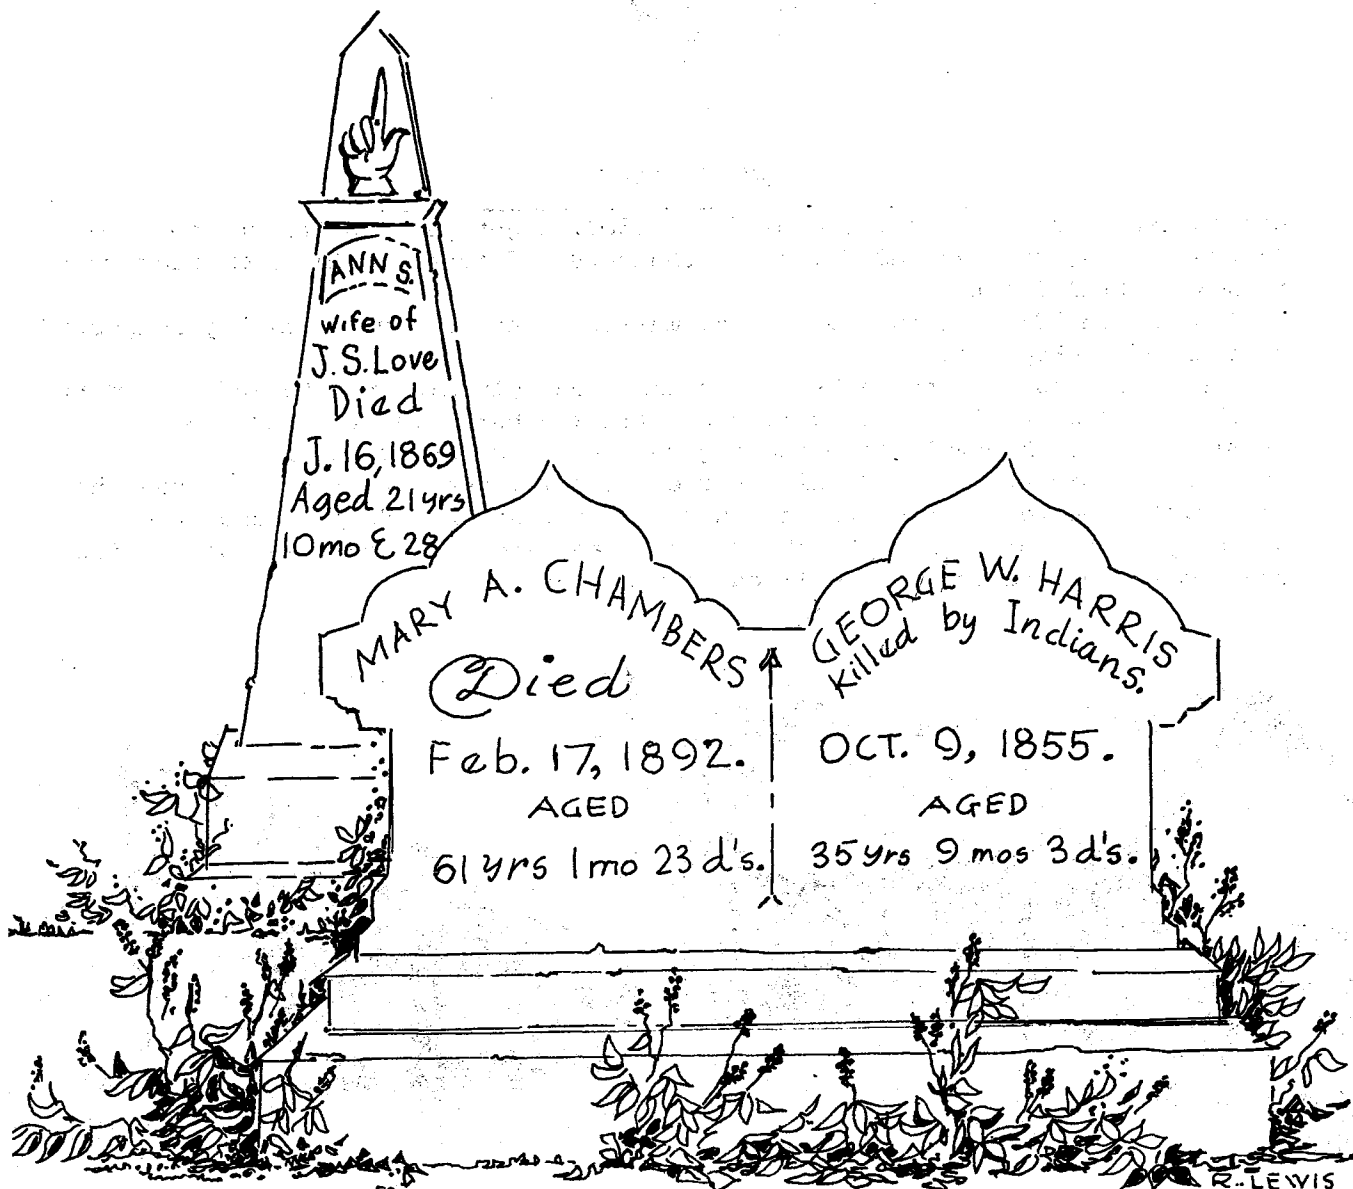 ANN S.
wife of
J.S. Love
Died
J. 16, 1869
Aged 21 yrs
10 mo & 28
MARY A. CHAMBERS
Died
Feb. 17, 1892.
AGED
61 yrs 1 mo 23 d's.
GEORGE W. HARRIS
Killed by Indians.
OCT. 9, 1855.
AGED
35 yrs 9 mos 3 d's.
R. LEWIS